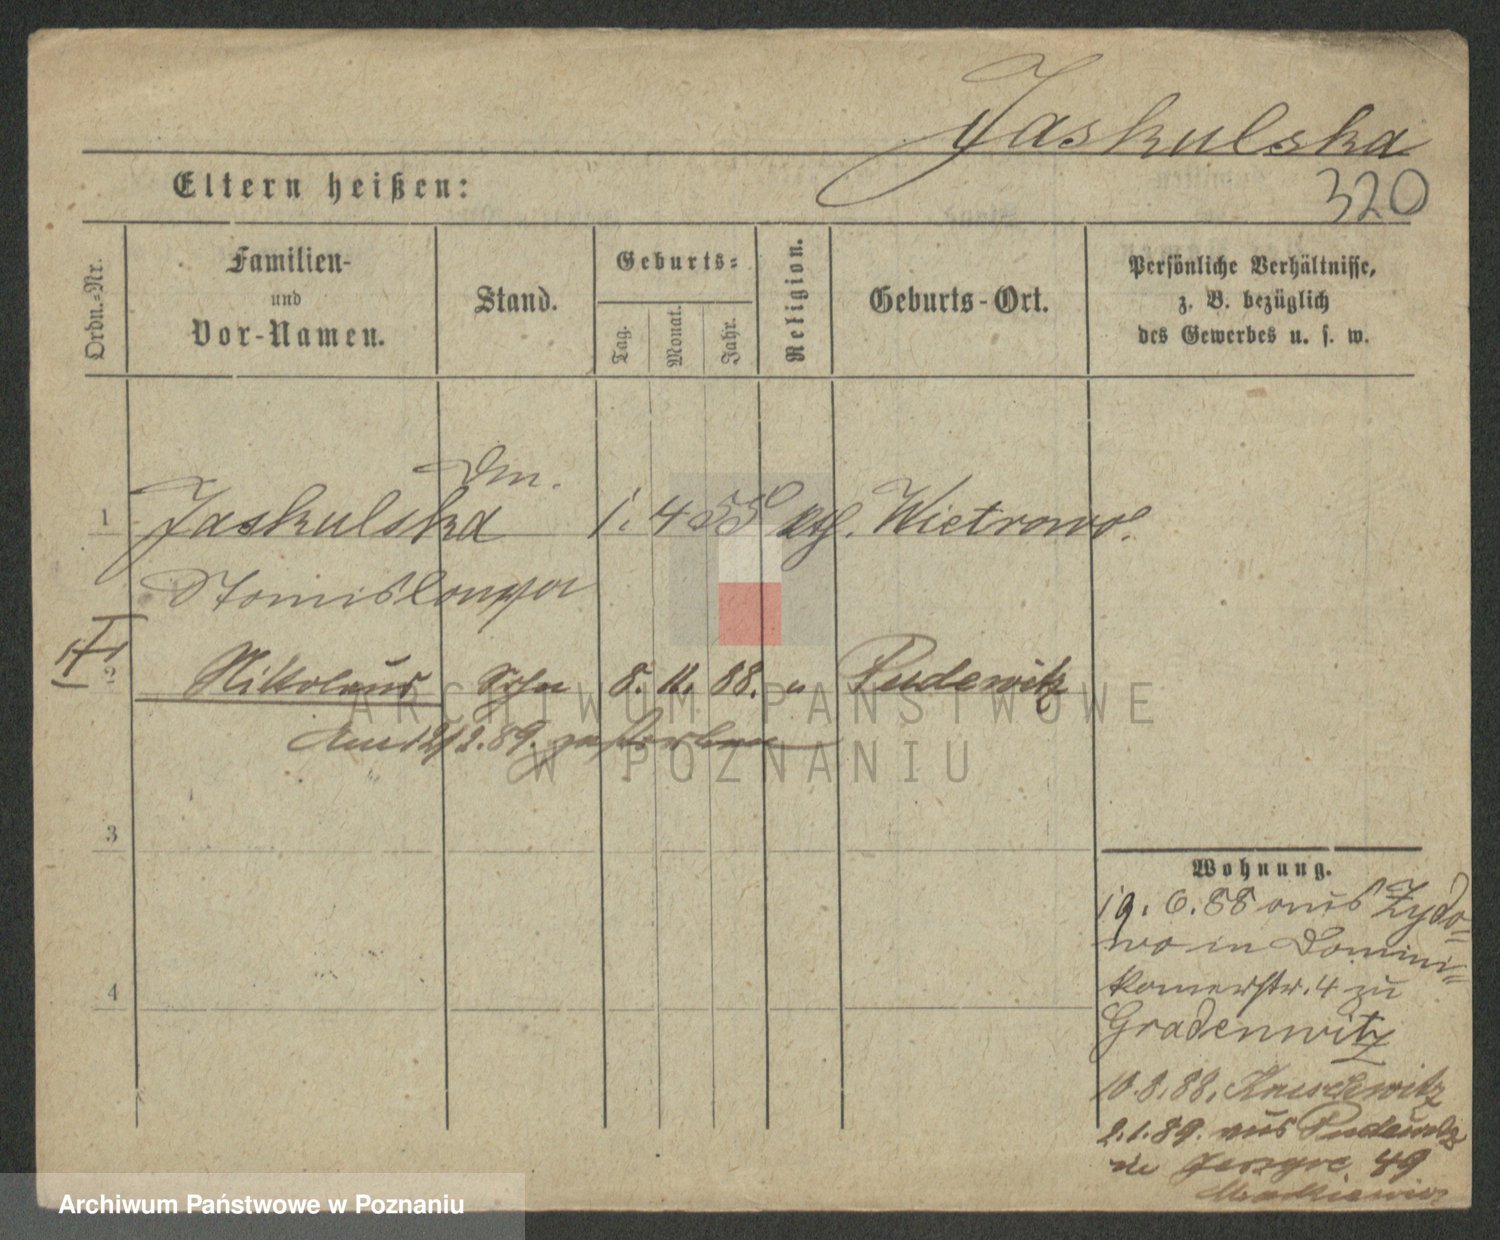 Jaskulska
320
Eltern heißen:
Ordn.-Nr.
Familien-
und
Vor-Namen.
Stand.
Geburts-
Tag.
Monat.
Jahr.
Religion.
Geburts-Ort.
Persönliche Verhältnisse,
z. B. bezüglich
des Gewerbes u. s. w.
1 Jaskulska 1. 4 55 kth. Wietrowo.
2 Nikolaus Sohn 8. 11. 88. " Pudewitz
2.89. gestorben
3
4
Wohnung.
19. 6. 88 aus Zydo=
wo in Domini=
kanerstr. 4 zu
Gradenwitz
10. 8. 88.
2.1.89. aus Pudewitz
49
ARCHIWUM PAŃSTWOWE
W POZNANIU
Archiwum Państwowe w Poznaniu